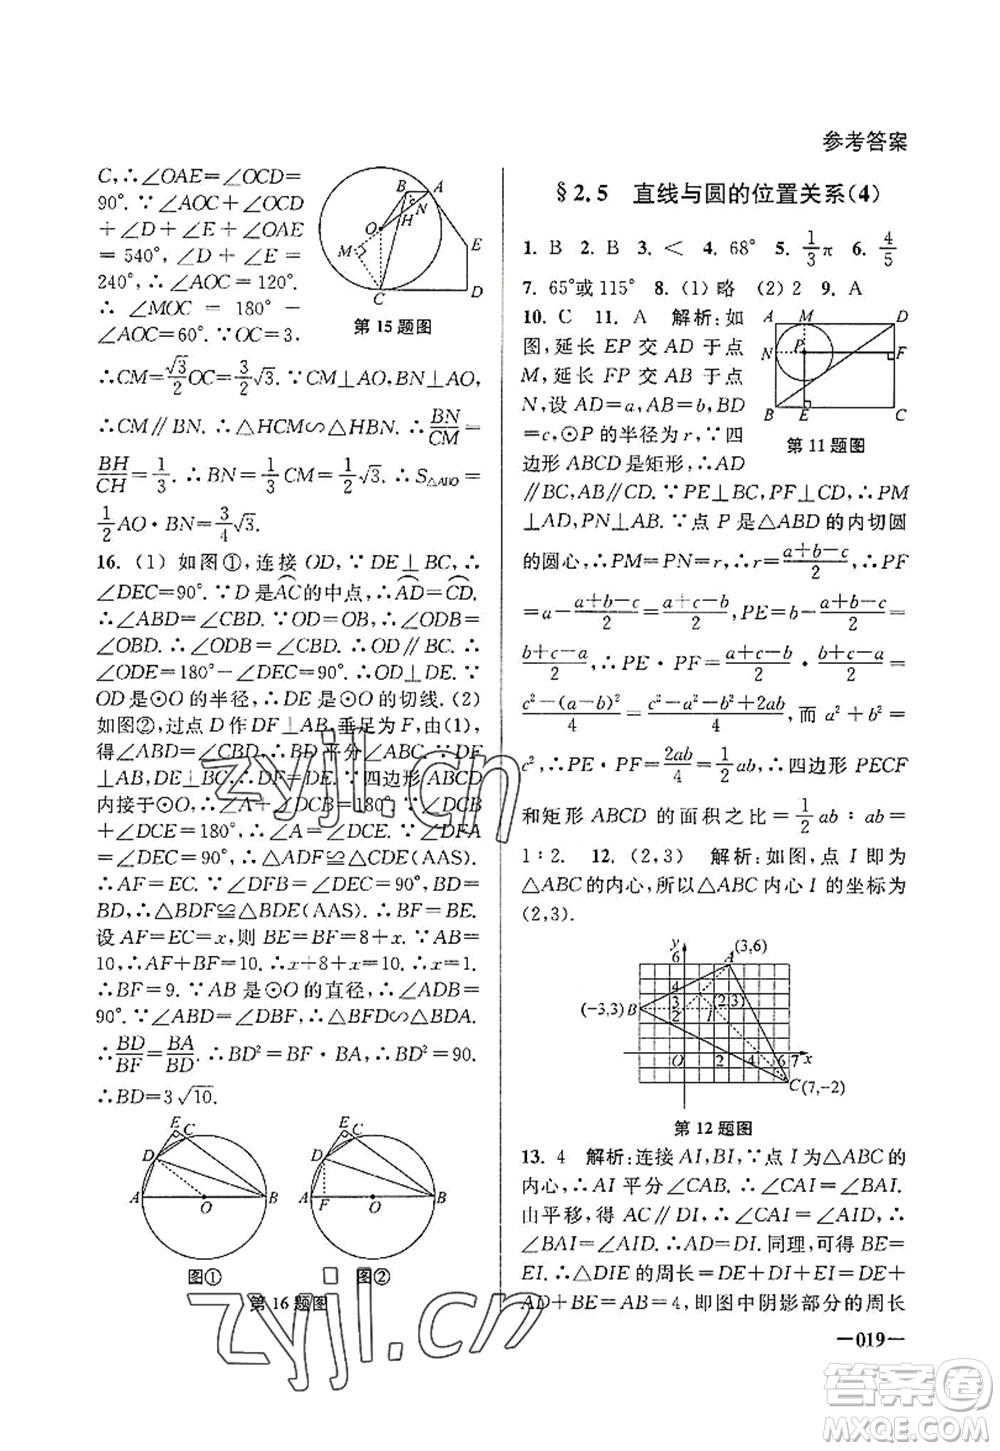 参考答案
C,∴∠OAE=∠OCD=
90°.∵∠AOC+∠OCD
+∠D+∠E+∠OAE
=540°,∠D+∠E=
240°,∴∠AOC=120°.
∴ ∠MOC = 180° −
∠AOC=60°.∵OC=3,
∴CM=√3/2 OC=3/2√3.∵CM⊥AO,BN⊥AO,
∴CM∥BN.∴△HCM∽△HBN.∴BN/CM=
BH/CH=1/3.∴BN=1/3CM=√3/2.∴S△ABO=
1/2AO·BN=3/4√3.
16. (1) 如图①,连接 OD,∵DE⊥BC,∴
∠DEC=90°.∵D 是AC的中点,∴AD=CD.
∴∠ABD=∠CBD.∵OD=OB,∴∠ODB=
∠OBD.∴∠ODB=∠CBD.∴OD∥BC.∴
∠ODE=180°−∠DEC=90°.∴OD⊥DE.∵
OD 是⊙O 的半径,∴DE 是⊙O 的切线.(2)
如图②,过点 D 作 DF⊥AB,垂足为 F,由(1),
得∠ABD=∠CBD,∴BD 平分∠ABC.∵DF
⊥AB,DE⊥BC,∴DF=DE.∵四边形 ABCD
内接于⊙O,∴∠A+∠DCB=180°.∵∠DCB
+∠DCE=180°,∴∠A=∠DCE.∵∠DFA
=∠DEC=90°,∴△ADF≌△CDE(AAS).
∴AF=EC.∵∠DFB=∠DEC=90°,BD=
BD,∴△BDF≌△BDE(AAS).∴BF=BE.
设 AF=EC=x,则 BE=BF=8+x.∵AB=
10,∴AF+BF=10.∴x+8+x=10.∴x=1.
∴BF=9.∵AB 是⊙O 的直径,∴∠ADB=
90°.∵∠ABD=∠DBF,∴△FBD∽△BDA.
∴BD/BF=BA/BD.∴BD²=BF·BA.∴BD²=90.
∴BD=3√10.
B A
O H N
M
E
C D
第 15 题图
E C
D
A O B
图①
E C
D
A F O B
图②
第 16 题图
§2.5 直线与圆的位置关系(4)
1. B 2. B 3. < 4. 68° 5. 1/3π 6. 4/5
7. 65°或 115° 8. (1) 略 (2) 2 9. A
10. C 11. A 解析:如
图,延长 EP 交 AD 于点
M,延长 FP 交 AB 于点
N,设 AD=a,AB=b,BD
=c,⊙P 的半径为 r,∵四
边形 ABCD 是矩形,∴AD
∥BC,AB∥CD.∵PE⊥BC,PF⊥CD,∴PM
⊥AD,PN⊥AB.∵点 P 是△ABD 的内切圆
的圆心,∴PM=PN=r,∴r=(a+b−c)/2,∴PF
=a−(a+b−c)/2=(a+c−b)/2,PE=b−(a+b−c)/2=
(b+c−a)/2.∴PE·PF=(a+c−b)/2·(b+c−a)/2=
(c²−(a−b)²)/4=(c²−a²−b²+2ab)/4,而 a²+b²=
c²,∴PE·PF=2ab/4=1/2ab,∴四边形 PECF
和矩形 ABCD 的面积之比=1/2ab∶ab=
1∶2. 12. (2,3) 解析:如图,点 I 即为
△ABC 的内心,所以△ABC 内心 I 的坐标为
(2,3).
A M D
N P F
B E C
第 11 题图
y A (3,6)
6
4
(−3,3) B 3 (2,3)
2 I
O 2 4 6 7 x
C(7,−2)
第 12 题图
13. 4 解析:连接 AI,BI,∵点 I 为△ABC 的
内心,∴AI 平分∠CAB.∴∠CAI=∠BAI.
由平移,得 AC∥DI,∴∠CAI=∠AID.∴
∠BAI=∠AID.∴AD=DI.同理,可得 BE=
EI.∴△DIE 的周长=DE+DI+EI=DE+
AD+BE=AB=4,即图中阴影部分的周长
—019—
zyjl.cn
zyjl.cn
答案圈
MXQE.COM